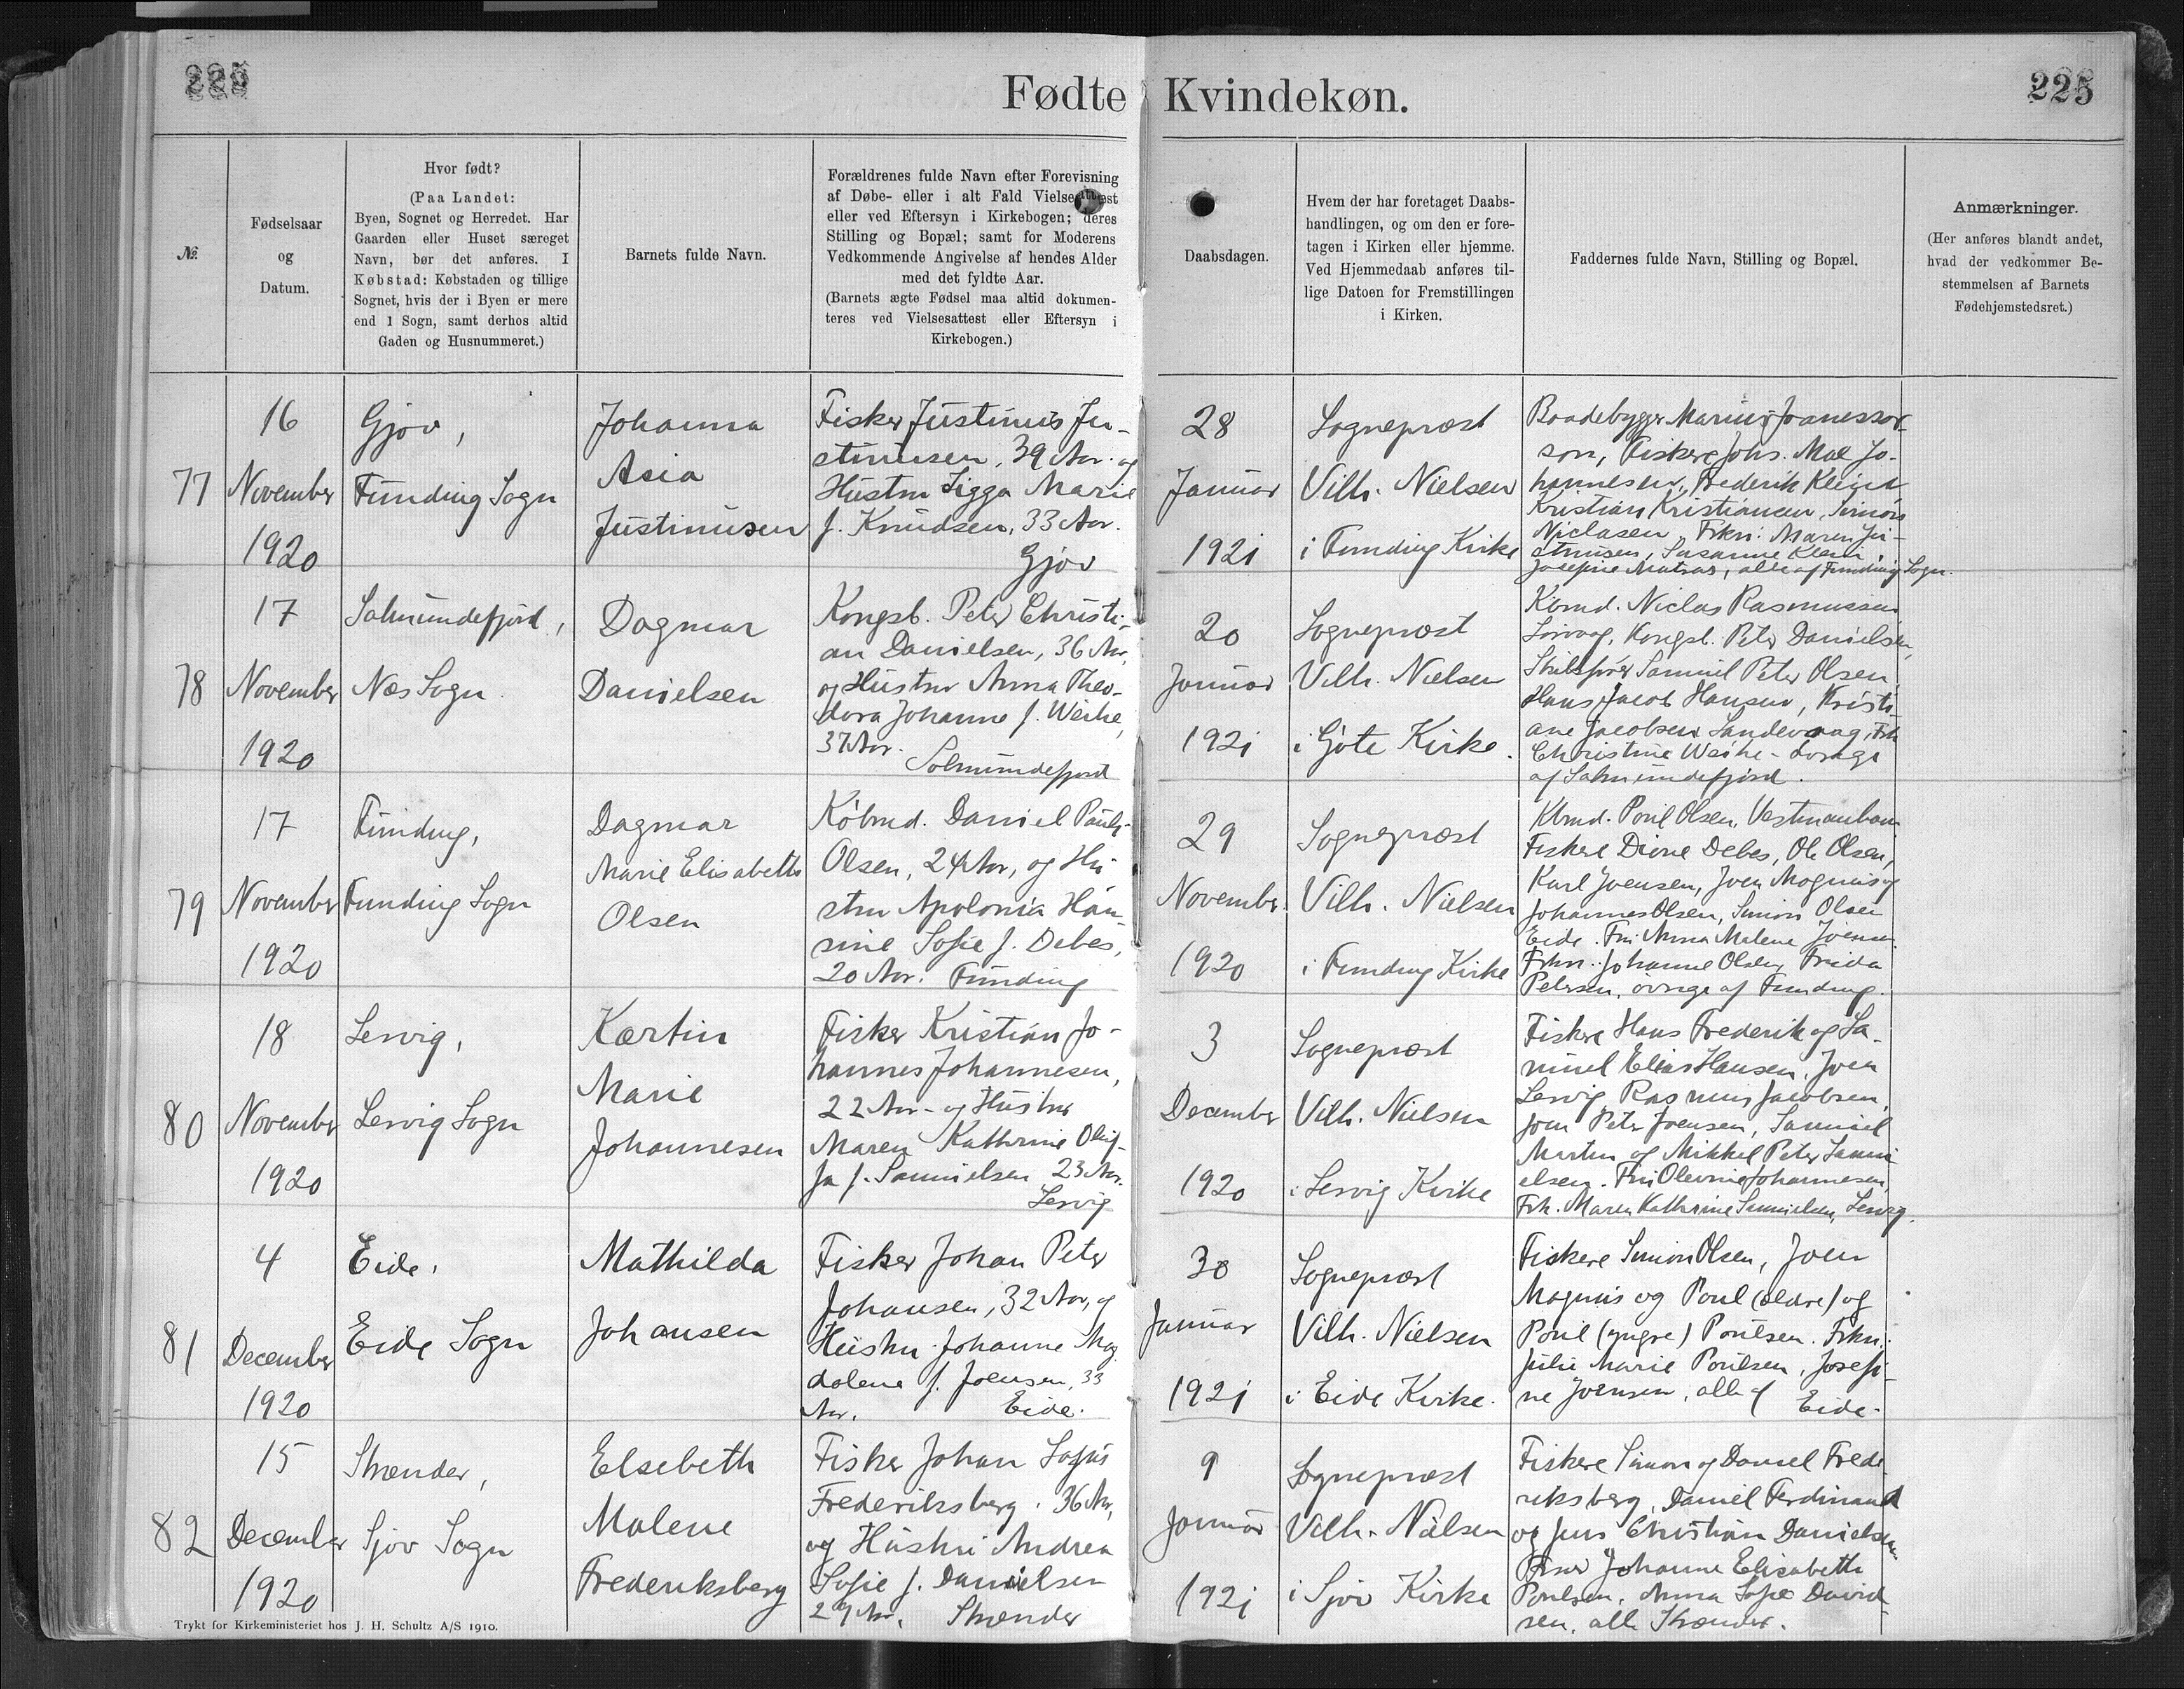 225
Fødte Kvindekøn.
225
№.
Fødselsaar
og
Datum.
Hvor født?
(Paa Landet:
Byen, Sognet og Herredet. Har
Gaarden eller Huset særeget
Navn, bør det anføres. I
Købstad: Købstaden og tillige
Sognet, hvis der i Byen er mere
end 1 Sogn, samt derhos altid
Gaden og Husnummeret.)
Barnets fulde Navn.
Forældrenes fulde Navn efter Forevisning
af Døbe- eller i alt Fald Vielsesattest
eller ved Eftersyn i Kirkebogen; deres
Stilling og Bopæl; samt for Moderens
Vedkommende Angivelse af hendes Alder
med det fyldte Aar.
(Barnets ægte Fødsel maa altid dokumen-
teres ved Vielsesattest eller Eftersyn i
Kirkebogen.)
Daabsdagen.
Hvem der har foretaget Daabs-
handlingen, og om den er fore-
tagen i Kirken eller hjemme.
Ved Hjemmedaab anføres til-
lige Datoen for Fremstillingen
i Kirken.
Faddernes fulde Navn, Stilling og Bopæl.
Anmærkninger.
(Her anføres blandt andet,
hvad der vedkommer Be-
stemmelsen af Barnets
Fødehjemstedsret.)
77
16
November
1920
Gjov,
Funding Sogn
Johanna
Asia
Justinusen
Fisker Justinus Ju-
stinusen, 39 Aar. og
Hustru Sigga Marie
f. Knudsen, 33 Aar.
Gjov
28
Januar
1921
Sognepræst
Vilh. Nielsen
i Funding Kirke
Baadebygger Marius
son, Fiskere Johs. Mae Jo-
hannesen, Frederik Klein
Kristian Kristiansen, Simon
Niclasen, Frkn: Maren Ju-
stinusen, Susanne Klein,
Josefine Matras, alle af Funding Sogn.
78
17
November
1920
Salmundefjord,
Næs Sogn.
Dagmar
Danielsen
Kongsb. Peter Christi-
an Danielsen, 36 Aar,
og Hustru Anna Theo-
dora Johanne f. Weihe,
37 Aar.
Solmundefjord
20
Januar
1921
Sognepræst
Vilh. Nielsen
i Gøte Kirke.
Kbmd. Niclas Rasmussen
Sørvaag, Kongsb. Peter Danielsen,
Samuel Peter Olsen
Hans Jacob Hansen, Kristi-
ane Jacobsen Sandevaag, Frk
Christine Weihe - øvrige
af Salmundefjord.
79
17
November
1920
Funding,
Funding Sogn
Dagmar
Marie Elisabeth
Olsen
Købmd. Daniel Pauls-
Olsen, 24 Aar, og Hu-
stru Apolonia Han-
sine Sofie f. Debes,
20 Aar. Funding
29
November
1920
Sognepræst
Vilh. Nielsen
i Funding Kirke
Kbmd. Poul Olsen, Vestmanhavn
Fiskere Debes, Ole Olsen,
Karl Joensen, Joen Magnus og
Johannes Olsen, Simon Olsen
Eide. Fru Anna Malene Joensen
Frkn: Johanne Olsen, Frida
Petersen, øvrige af Funding.
80
18
November
1920
Lervig,
Lervig Sogn
Kartin
Marie
Johannesen
Fisker Kristian Jo-
hannes Johannesen,
22 Aar - og Hustru
Maren Kathrine
f. Samuelsen 23 Aar.
Lervig
3
December
1920
Sognepræst
Vilh. Nielsen
i Lervig Kirke
Fiskere Hans Frederik og Sa-
muel Elias Hansen, Joen
Lervig, Rasmus Jacobsen,
Joen Peter Joensen, Samuel
Martin og Mikkel Peter Samu-
elsen. Fru Johannesen,
Frk. Maren Kathrine Samuelsen, Lervig.
81
4
December
1920
Eide,
Eide Sogn
Mathilda
Johansen
Fisker Johan Peter
Johansen, 32 Aar, og
Hustru Johanne Mag
dalene f. Joensen, 33
Aar. Eide.
30
Januar
1921
Sognepræst
Vilh. Nielsen
i Eide Kirke.
Fiskere Simon Olsen, Joen
Magnus og Poul (ældre) og
Poul (yngre) Poulsen. Frkn:
Julie Marie Poulsen, Josefi-
ne Joensen, alle af Eide.
82
15
December
1920
Strænder,
Sjov Sogn
Elsebeth
Malene
Frederiksberg
Fisker Johan Sofus
Frederiksberg. 36 Aar,
og Hustru Andrea
Sofie f. Danielsen
29 Aar. Strænder
9
Januar
1921
Sognepræst
Vilh. Nielsen
i Sjov Kirke
Fiskere Simon og Daniel Frede-
riksberg, Daniel Ferdinand
og Jens Christian Danielsen.
Johanne Elisabeth
Poulsen, Anna Sofie David-
sen, alle Strænder.
Trykt for Kirkeministeriet hos J. H. Schultz A/S 1910.